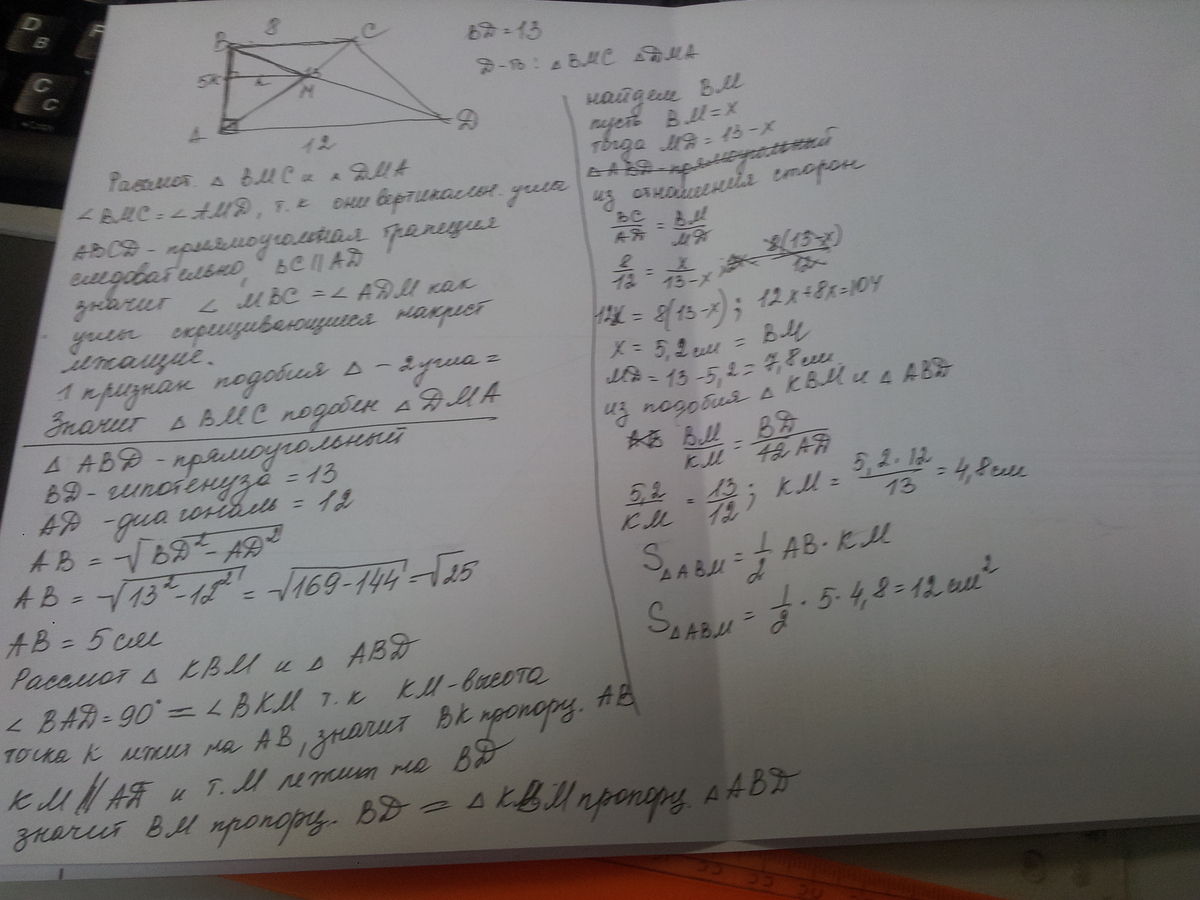 B 8 C
5 K x
M
A
12
D
BD = 13
Д-ть: △ BMC △ DMA
Рассмот. △ BMC и △ DMA
∠ BMC = ∠ AMD, т.к они вертикальн. углы
ABCD - прямоугольная трапеция
следовательно, BC || AD
значит ∠ MBC = ∠ ADM как
углы скрещивающиеся накрест
лежащие.
1 признак подобия △ - 2 угла =
Значит △ BMC подобен △ DMA
△ ABD - прямоугольный
BD - гипотенуза = 13
AD - диагональ = 12
AB = √BD² - AD²
AB = √13² - 12² = √169 - 144 = √25
AB = 5 см
Рассмот △ KBM и △ ABD
∠ BAD = 90° = ∠ BKM т.к KM - высота
точка K лежит на AB, значит BK пропорц. AB
KM || AD и т. M лежит на BD
значит BM пропорц. BD = △ KBM пропорц. △ ABD
найдем BM
пусть BM = x
тогда MD = 13 - x
△ ABD - прямоугольный
из отношения сторон
BC/AD = BM/MD
8/12 = x/13-x 8(13-x)/12
12x = 8(13-x); 12x + 8x = 104
x = 5,2 см = BM
MD = 13 - 5,2 = 7,8 см.
из подобия △ KBM и △ ABD
BM/KM = BD/AD
5,2/KM = 13/12; KM = 5,2·12/13 = 4,8 см
S△ABM = 1/2 AB · KM
S△ABM = 1/2 · 5 · 4,8 = 12 см²